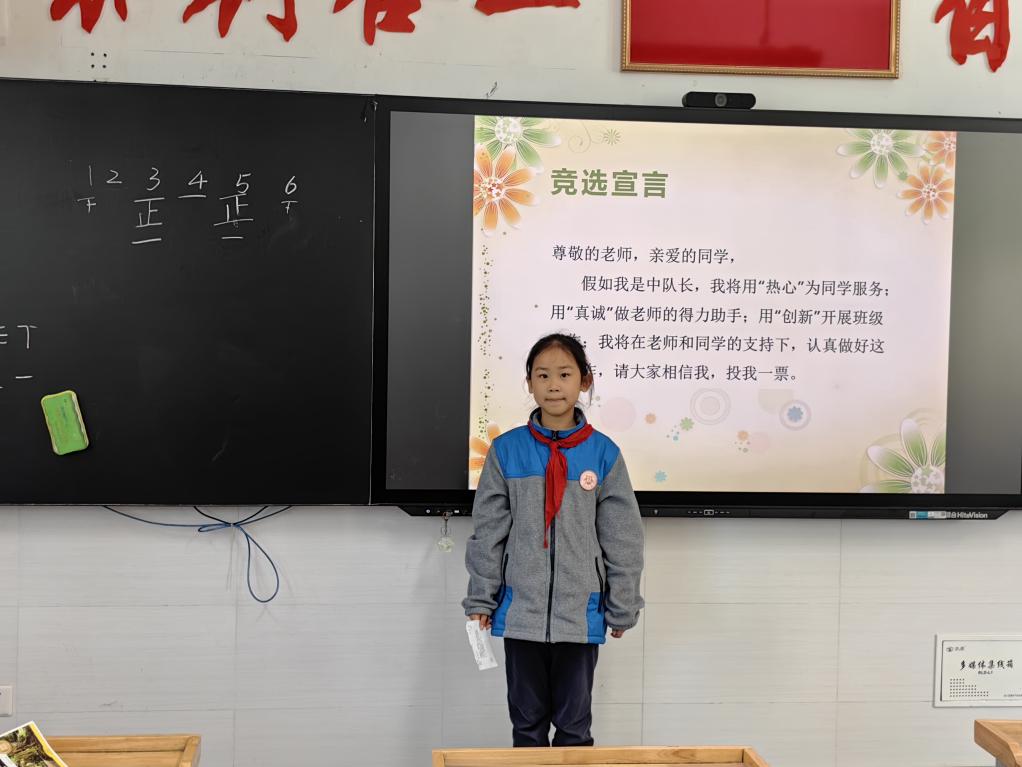 1 2 3 4 5 6
正 正
竞选宣言
尊敬的老师，亲爱的同学，
假如我是中队长，我将用“热心”为同学服务；
用“真诚”做老师的得力助手；用“创新”开展班级
；我将在老师和同学的支持下，认真做好这
，请大家相信我，投我一票。
HiteVision
多媒体集线箱